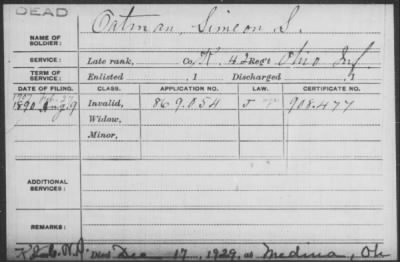 DEAD
NAME OF SOLDIER: Oatman, Simeon S.
SERVICE: Late rank, Co. K. 42 Reg't Ohio Inf.
TERM OF SERVICE: Enlisted , 1 Discharged , 1
DATE OF FILING. CLASS. APPLICATION NO. LAW. CERTIFICATE NO.
1890 Aug. 9 Invalid, 869.054 908.477
Widow,
Minor,
ADDITIONAL SERVICES:
REMARKS:
Died Dec 17, 1929, at Medina, Oh